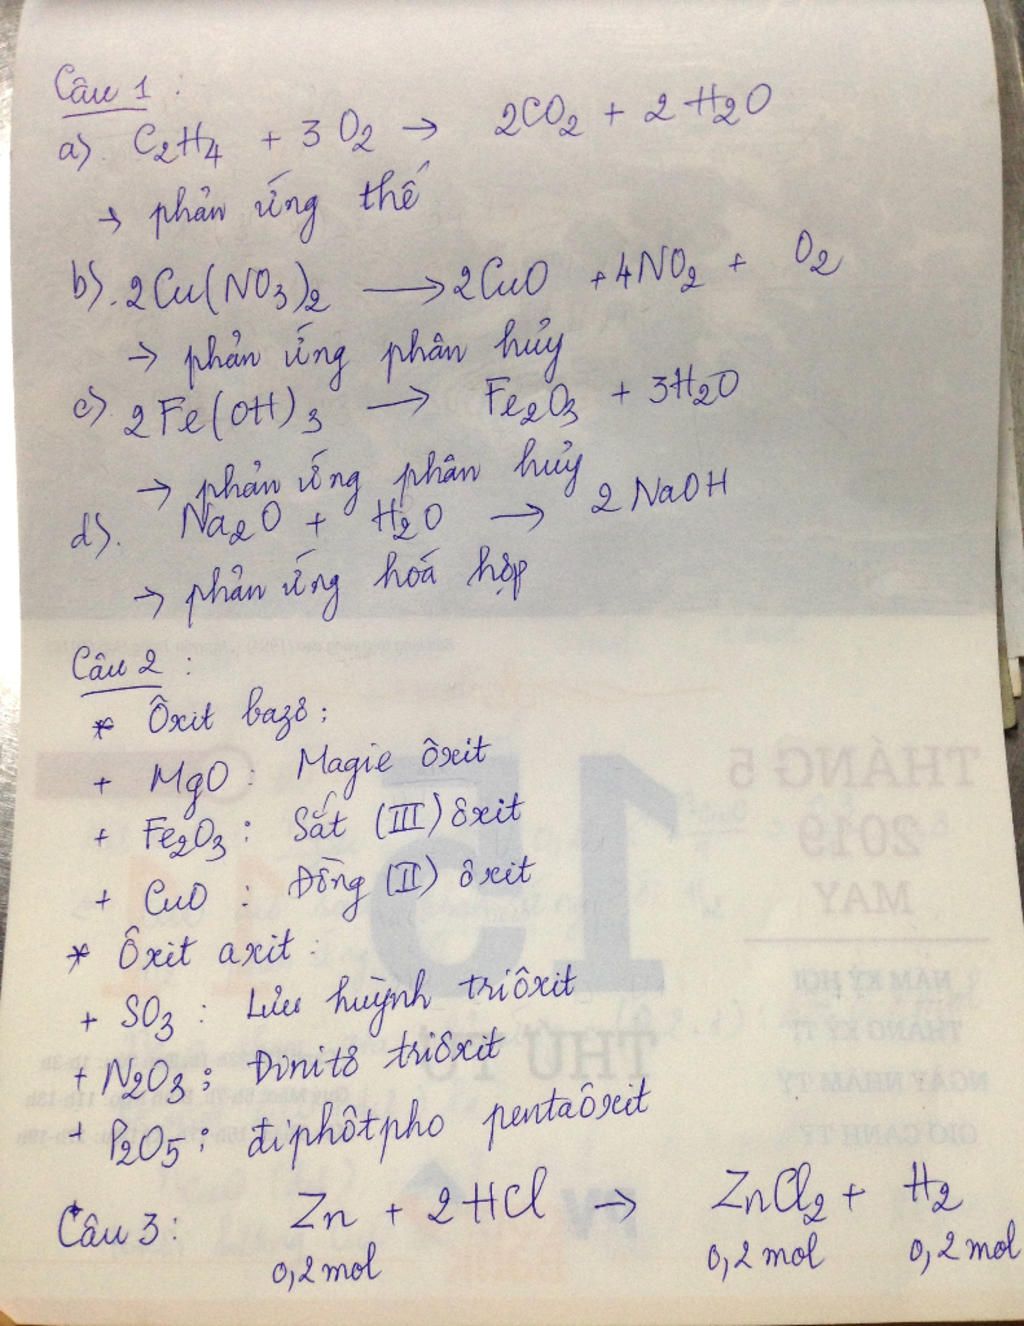 Câu 1 :
a). C₂H₄ + 3 O₂ → 2CO₂ + 2 H₂O
→ phản ứng thế
b). 2Cu(NO₃)₂ ⟶ 2CuO + 4NO₂ + O₂
→ phản ứng phân hủy
c). 2Fe(OH)₃ ⟶ Fe₂O₃ + 3H₂O
→ phản ứng phân hủy
d). Na₂O + H₂O → 2 NaOH
→ phản ứng hoá hợp
Câu 2 :
* Ôxit bazơ :
+ MgO : Magie ôxit
+ Fe₂O₃ : Sắt (III) ôxit
+ CuO : Đồng (II) ôxit
* Ôxit axit :
+ SO₃ : Lưu huỳnh triôxit
+ N₂O₃ : Đinitơ triôxit
+ P₂O₅ : điphôtpho pentaôxit
Câu 3 : Zn + 2HCl → ZnCl₂ + H₂
0,2 mol 0,2 mol 0,2 mol
THÁNG 5
2019
MAY
15
THỨ TƯ
NĂM KỶ HỢI
THÁNG KỶ TỴ
NGÀY NHÂM TÝ
GIỜ CANH TÝ